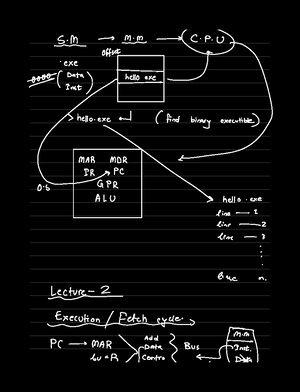 S.M → M.M → C.P.U
offset
.exe
Data
Inst
hello.exe
> hello.exe ↵ (find binary executible)
MAR MDR
IR PC
GPR
ALU
O.S
hello.exe
line - 1
line - 2
line - 3
n.
Lecture - 2
Execution / Fetch cycle.
PC → MAR
Add
Data
Contro
Bus
M.M
Inst.
Data